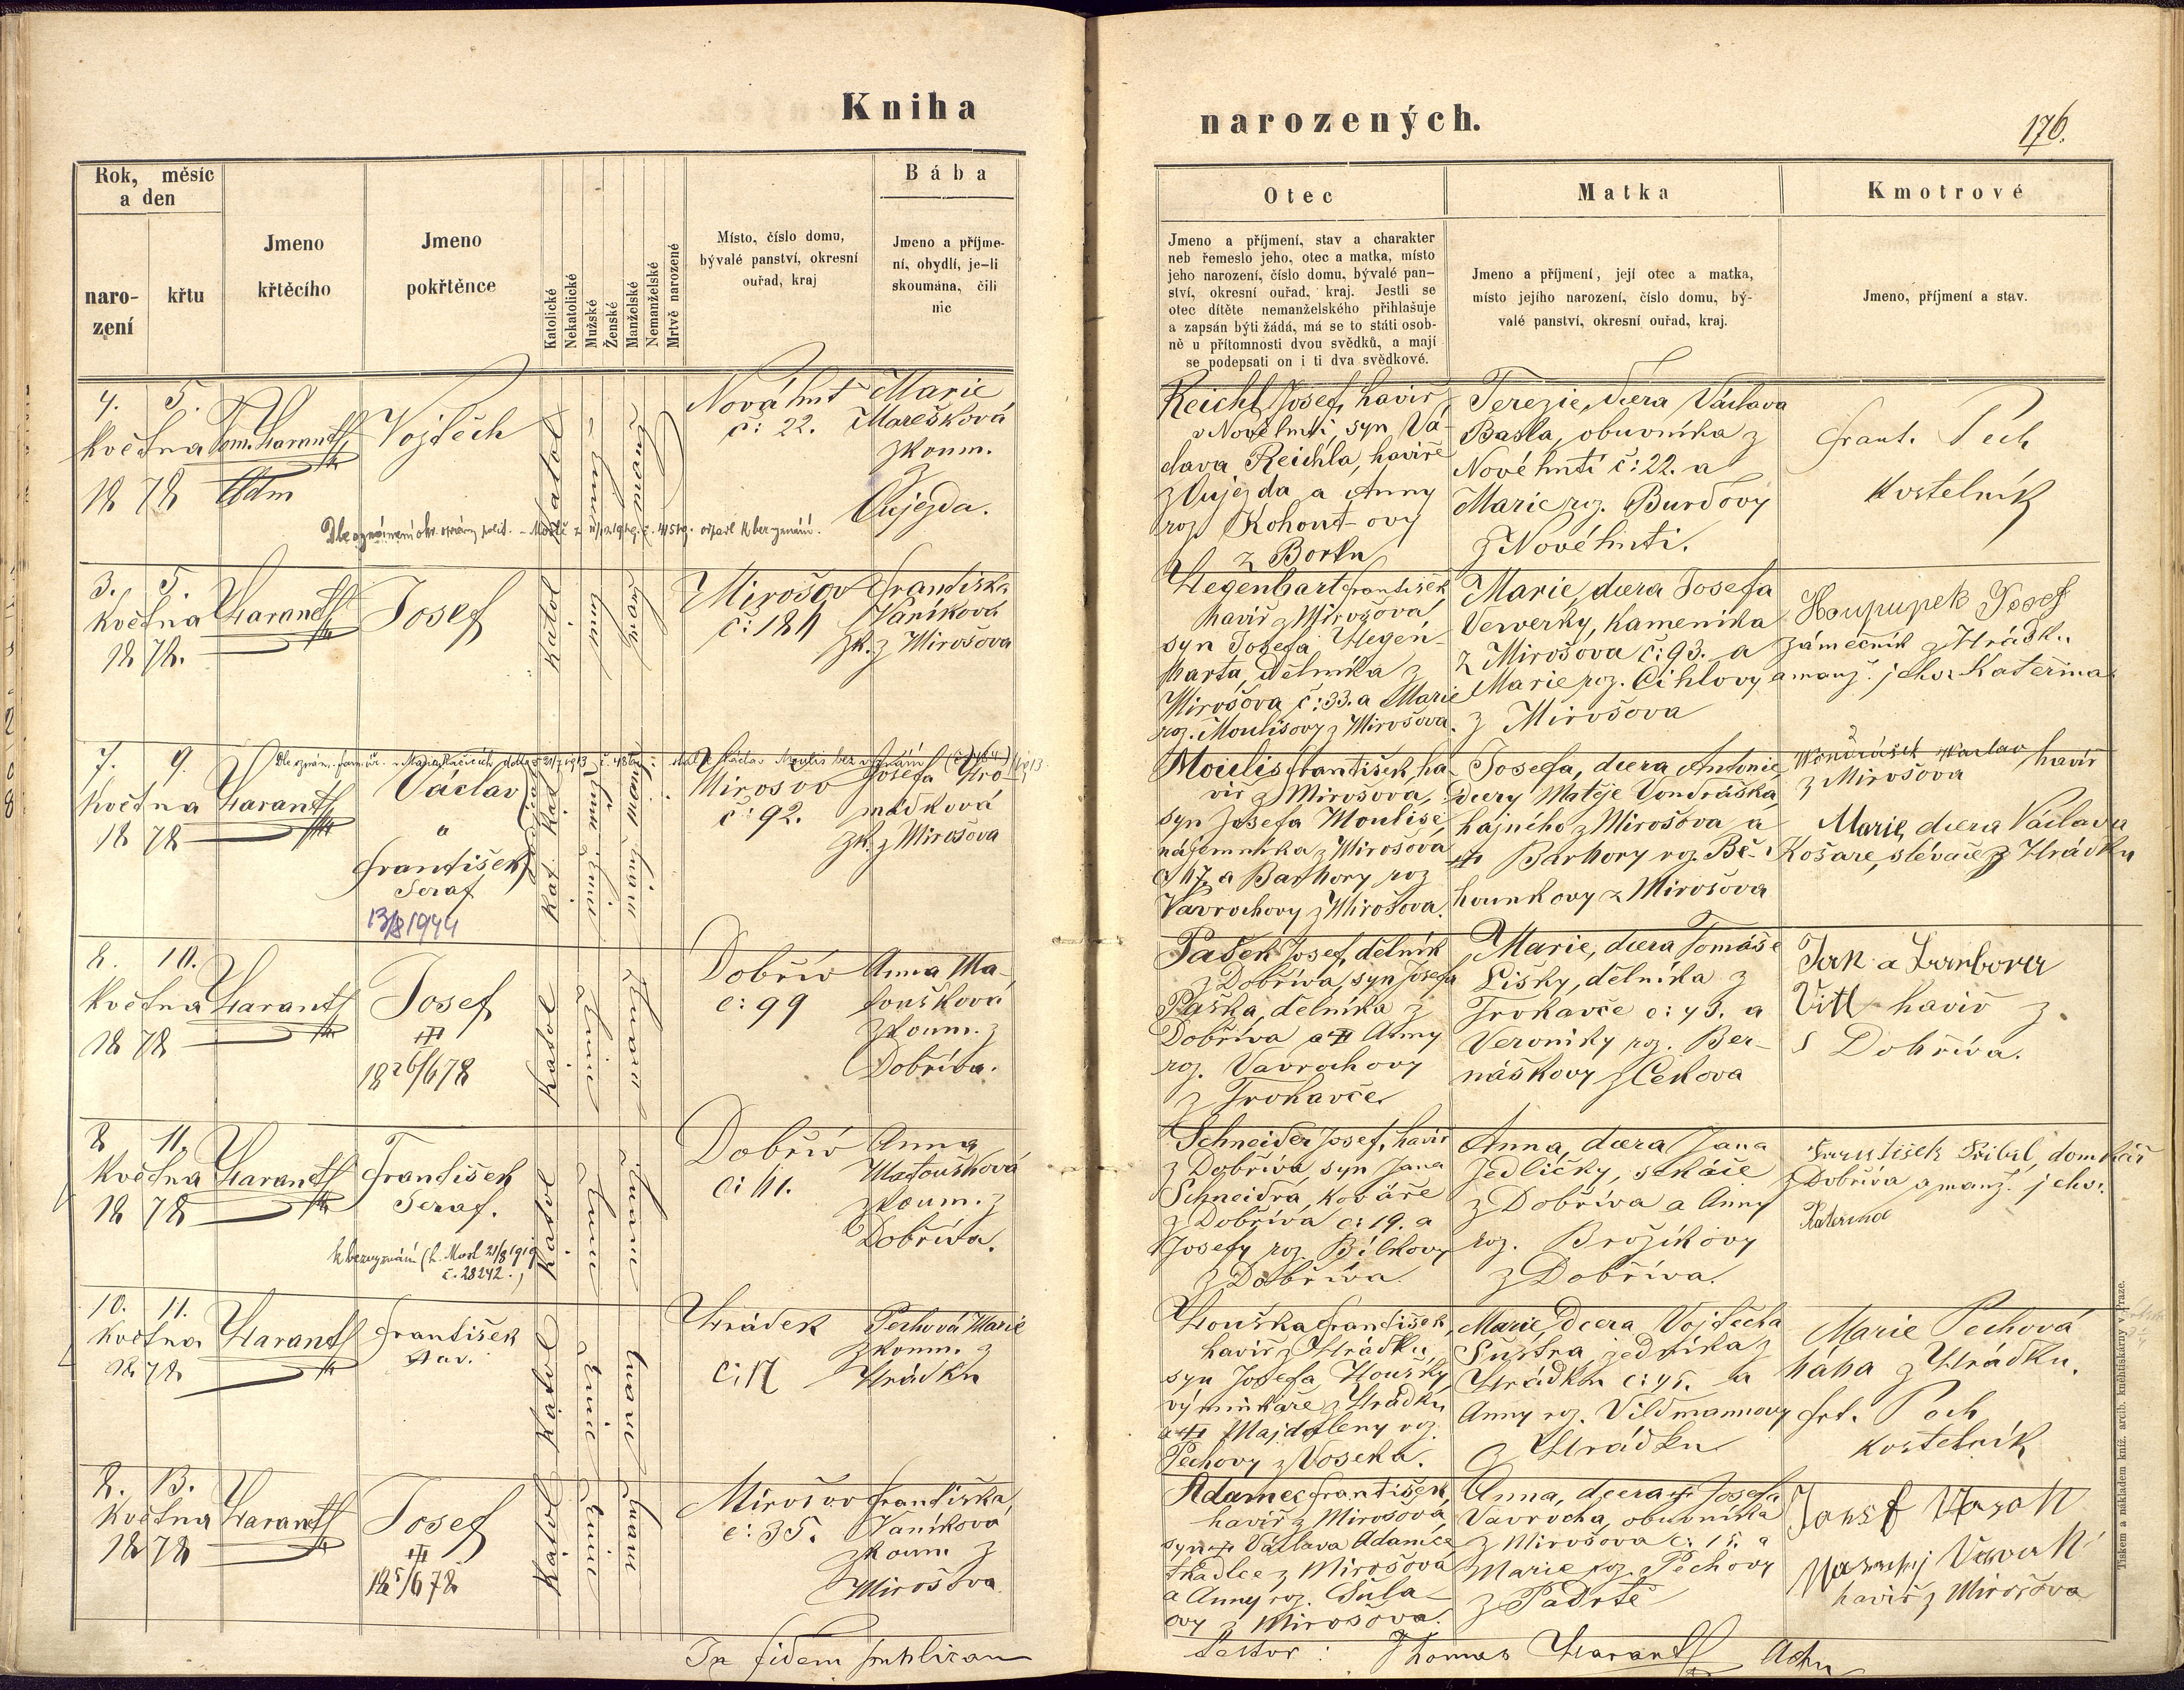 Kniha
narozených.
176.
Rok, měsíc
a den
naro-
zení
křtu
Jmeno
křtěcího
Jmeno
pokřtěnce
Katolické
Nekatolické
Mužské
Ženské
Manželské
Nemanželské
Mrtvě narozené
Místo, číslo domu,
bývalé panství, okresní
ouřad, kraj
Bába
Jmeno a příjme-
ní, obydlí, je-li
skoumána, čili
nic
Otec
Jmeno a příjmení, stav a charakter
neb řemeslo jeho, otec a matka, místo
jeho narození, číslo domu, bývalé pan-
ství, okresní ouřad, kraj. Jestli se
otec dítěte nemanželského přihlašuje
a zapsán býti žádá, má se to státi osob-
ně u přítomnosti dvou svědků, a mají
se podepsati on i ti dva svědkové.
Matka
Jmeno a příjmení, její otec a matka,
místo jejího narození, číslo domu, bý-
valé panství, okresní ouřad, kraj.
Kmotrové
Jmeno, příjmení a stav.
4. 5.
května
1878
Harantt
Adm
Vojtěch
Katol
Nová huť
č: 22.
Marie
Marešková
zkoum.
z
Oujezda.
odpadl k bezvyznání.
Reichl Josef, havíř
v Nové huti syn Vá-
clava Reichla, havíře
z Oujezda a Anny
roz. Kohout-ovy
z Borku
Terezie, dcera Václava
Bašta, obuvníka z
Nové huti č: 22. a
Marie roz. Burdovy
z Nové huti.
Frant. Pech
kostelník
3. 5.
května
1878.
Harantt
Josef
Katol
Mirošov
č: 184
Františka
Vaníková
zk. z Mirošova
Hegenbart František
havíř z Mirošova,
syn Josefa Hegen-
barta, dělníka z
Mirošova č: 33. a Marie
roz. Moulisovy z Mirošova.
Marie, dcera Josefa
Vewerky, kameníka
z Mirošova č: 93. a
Marie roz. Cihlovy
z Mirošova
Josef
zámečník z Hrádku
a manž. jeho Kateřina
7. 9.
května
1878
Harantt
Václav
a
František
Seraf
13/8 1944
Kat. Kat
Mirošov
č: 92.
Josefa Hro-
mádková
zk. z Mirošova
Moulis František, ha-
víř z Mirošova,
syn Josefa Moulise
nájemníka z Mirošova
č 47. a Barbory roz
Vavrochovy z Mirošova.
Josefa, dcera Antonie,
dcery Matěje Vondráška,
hajného z Mirošova a
Barbory roz. Bě-
hounkovy z Mirošova
Vondrášek Václav havíř
z Mirošova
Marie, dcera Václava
Košaře, slévače z Hrádku
8. 10.
května
1878
Harantt
Josef
18 26/6 78
Katol
Dobřív
č: 99
Anna Ma-
toušková
zkoum. z
Dobříva.
Pašek Josef, dělník
z Dobříva, syn Josefa
Paška, dělníka z
Dobříva a Anny
roz. Vavrochovy
z Trokavce
Marie, dcera Tomáše
Lišky, dělníka z
Trokavce č: 43. a
Veroniky roz. Ber-
náškovy z Čekova
Jan a Barbora
Vitl havíř z
Dobříva.
8 11.
května
1878
Harantt
František
Seraf.
k bezvyznání
č. 28242.
Katol
Dobřív
č: 41.
Anna
Matoušková
zkoum. z
Dobříva.
Schneider Josef, havíř
z Dobříva, syn Jana
Schneidra, kováře
z Dobříva č: 19. a
Josefy roz. Bílkovy
z Dobříva.
Anna, dcera Jana
Jedličky, sekáče
z Dobříva a Anny
roz. Brožíkovy
z Dobříva.
František domkář
z Dobříva a manž. jeho
Kateřina
10. 11.
května
1878
Harantt
František
Katol
Hrádek
č: 17
Pechová Marie
zkoum. z
Hrádku
Houška František,
havíř z Hrádku,
syn Josefa Houšky,
výminkáře z Hrádku
a Majdaleny roz.
Pechovy z Voseka.
Marie, dcera Vojtěcha
Šustra z
Hrádku č: 45. a
Anny roz. Vildmannovy
z Hrádku
Marie Pechová
bába z Hrádku.
frt. Pech
kostelník
8. 13.
května
1878
Harantt
Josef
18 5/6 78
Katol
Mirošov
č: 35.
Františka
Vaníková
zkoum z
Mirošova
Adamec František,
havíř z Mirošova,
syn Václava Adamce
tkadlce z Mirošova
a Anny roz. Šula-
ovy z Mirošova.
Anna, dcera Josefa
Vavrocha, obuvníka
z Mirošova č: 15. a
Marie roz. Pechovy
z Padrtě
Josef
havíř z Mirošova
In fidem publicam
Thomas Harantt Adm
Tiskem a nákladem kníž. arcib. kněhtiskárny v Praze.